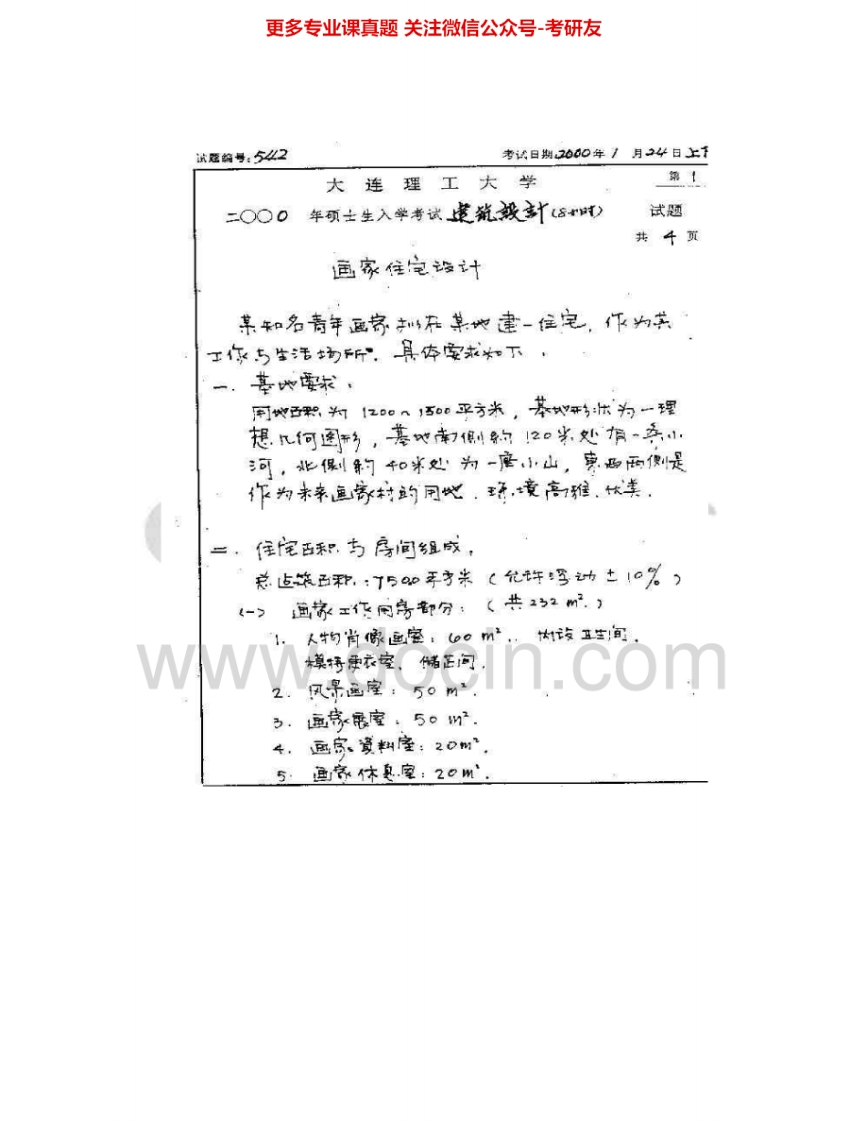 更多专业课真题 关注微信公众号-考研友
试题编号:542 考试日期:2000年1月24日上午
第 1
大连理工大学
二〇〇〇 年硕士生入学考试 建筑设计(8小时) 试题
共 4 页
画家住宅设计
某知名青年画家拟在某地建一住宅,作为其
工作与生活场所。具体要求如下:
一. 基地要求:
用地面积为1200~1500平方米,基地形状为一理
想几何图形,基地南侧约120米处有一条小
河,北侧约40米处为一座小山,东西两侧是
作为未来画家村的用地.环境高雅.优美.
二. 住宅面积与房间组成:
总建筑面积:7500平方米(允许浮动±10%)
(一) 画家工作用房部分:(共232m².)
1. 人物肖像画室:60m².. 附设卫生间.
模特更衣室. 储藏间.
2. 风景画室:50m².
3. 画家展室:50m².
4. 画家资料室:20m².
5. 画家休息室:20m².
www.docin.com